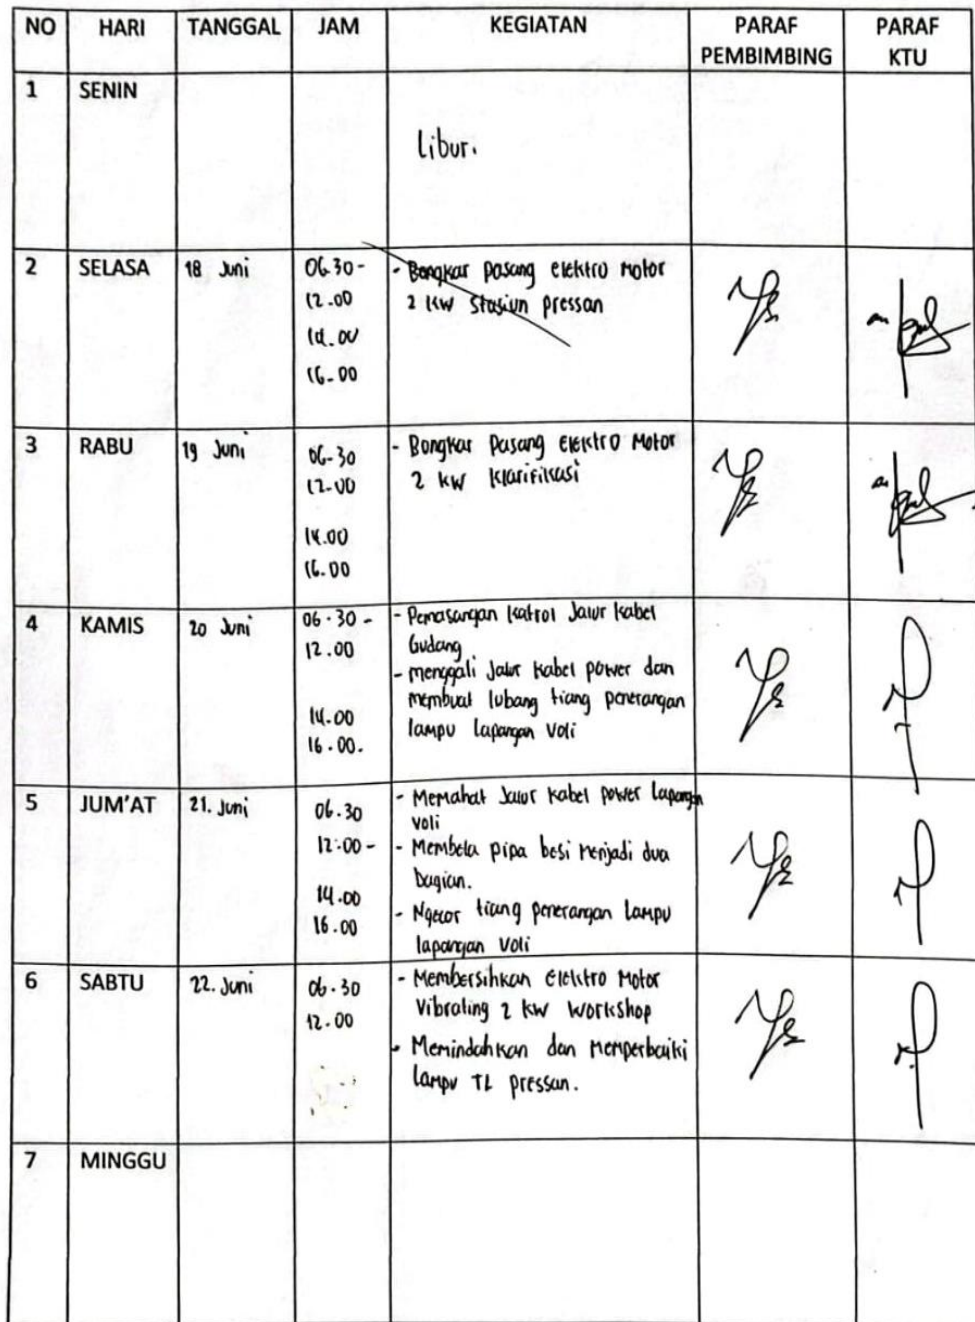 NO HARI TANGGAL JAM KEGIATAN PARAF PEMBIMBING PARAF KTU
1 SENIN
Libur.
2 SELASA 18 Juni 06.30 - - Bongkar pasang elektro Motor
12.00 2 kw Stasiun pressan
14.00
16.00
3 RABU 19 Juni 06-30 - Bongkar Pasang elektro Motor
12-00 2 kw klarifikasi
14.00
16.00
4 KAMIS 20 Juni 06.30 - - Pemasangan katrol Jalur kabel
12.00 Gudang
- menggali Jalur kabel power dan
membuat lubang tiang penerangan
14.00 lampu lapangan voli
16.00.
5 JUM'AT 21. Juni 06.30 - Memahat Jalur kabel power lapangan
voli
12.00 - - Membela pipa besi menjadi dua
14.00 bagian.
16.00 - Ngecor tiang penerangan lampu
lapangan voli
6 SABTU 22. Juni 06.30 - Membersihkan elektro Motor
12.00 Vibrating 2 kw workshop
- Memindahkan dan memperbaiki
lampu TL pressan.
7 MINGGU